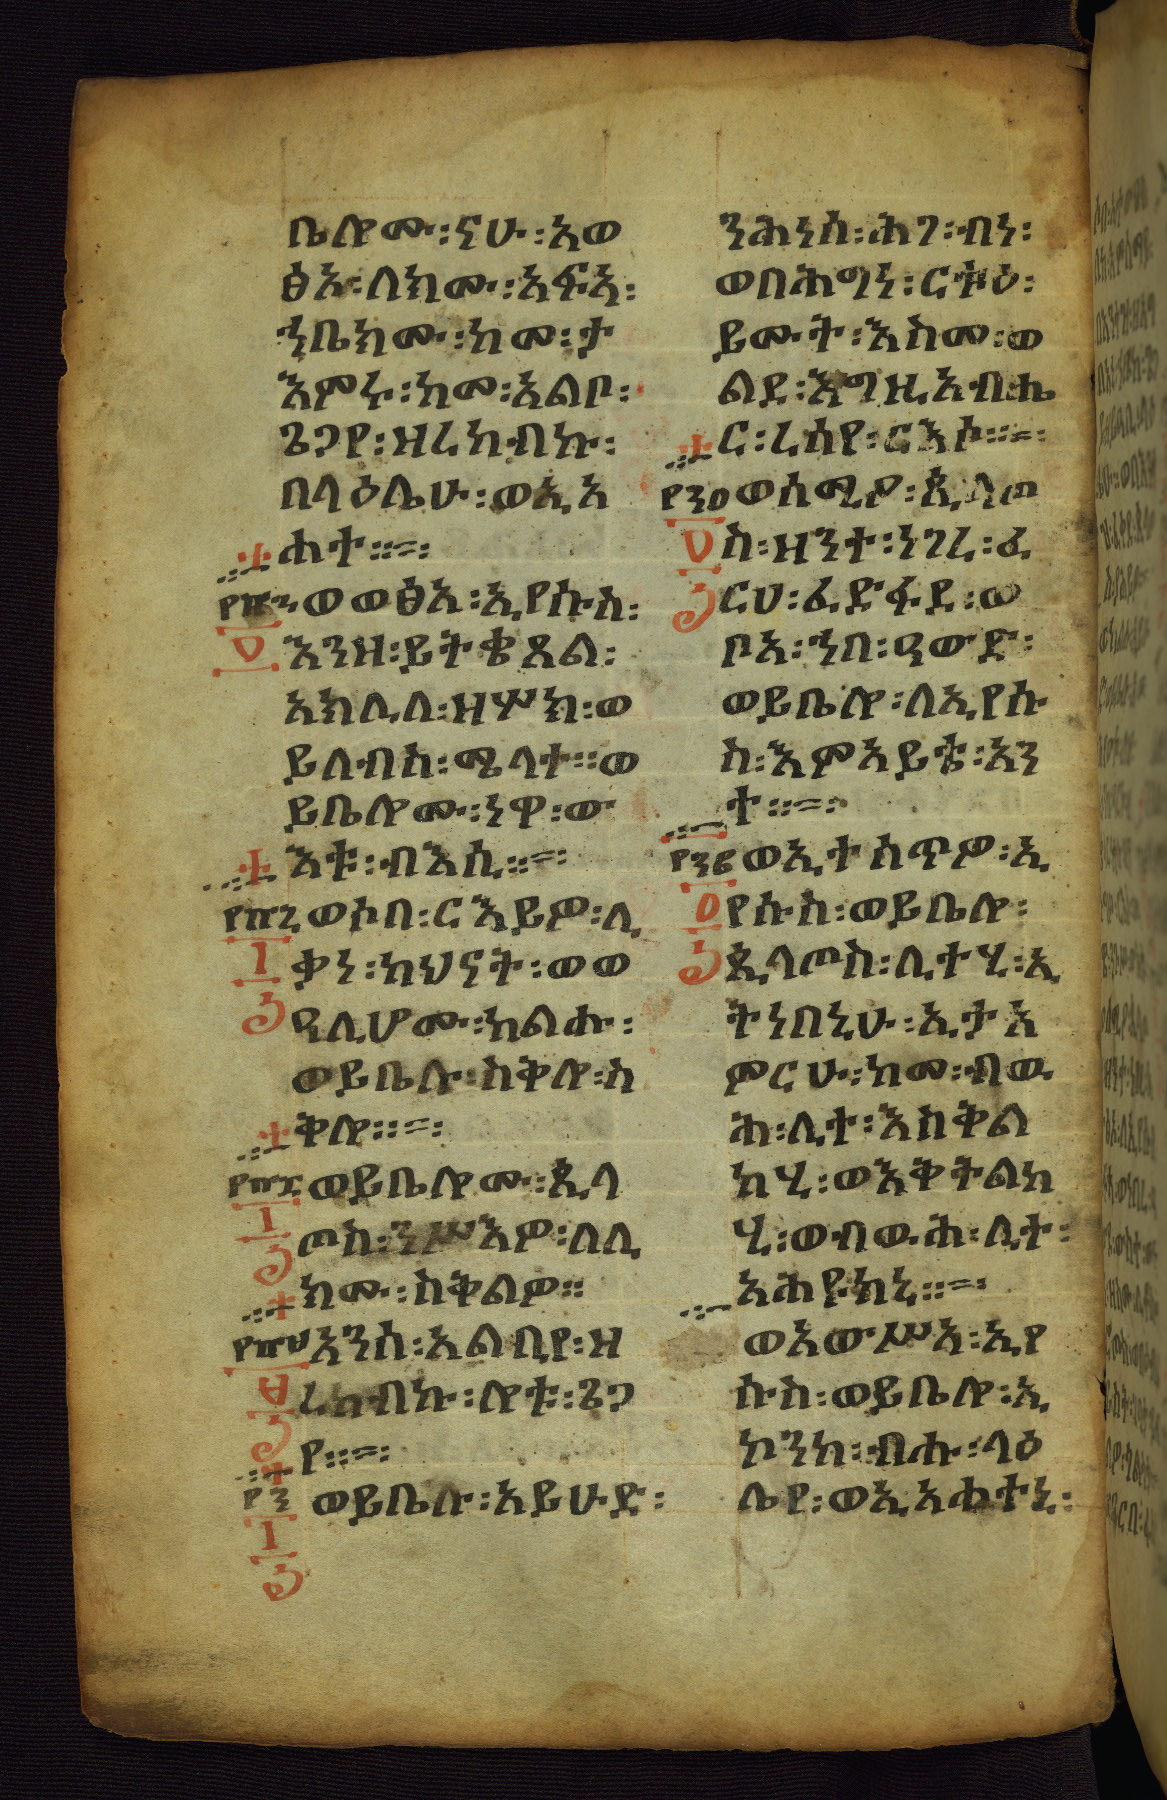 ቤሎሙ፡ናሁ፡አወ
ፅእ፡ለክሙ፡አፍአ፡
ኀቤክሙ፡ከመ፡ታ
እምሩ፡ከመ፡አልቦ፡
ጌጋየ፡ዘረከብኩ፡
በላዕሌሁ፡ወኢአ
ሐተ።=፡
ወወፅአ፡ኢየሱስ፡
እንዘ፡ይትቄጸል፡
አክሊለ፡ዘሦክ፡ወ
ይለብስ፡ሜላተ።ወ
ይቤሎሙ፡ነዋ፡ው
እቱ፡ብእሲ።=፡
ወሶበ፡ርእይዎ፡ሊ
ቃነ፡ካህናት፡ወወ
ዓሊሆሙ፡ከልሑ፡
ወይቤሉ፡ስቅሎ፡ስ
ቅሎ።=፡
ወይቤሎሙ፡ጲላ
ጦስ፡ንሥእዎ፡ለሊ
ክሙ፡ስቅልዎ።
አንሰ፡አልቢየ፡ዘ
ረከብኩ፡ሎቱ፡ጌጋ
የ።=፡
ወይቤሉ፡አይሁድ፡
ንሕነሰ፡ሕገ፡ብነ፡
ወበሕግነ፡ርቱዕ፡
ይሙት፡እስመ፡ወ
ልደ፡እግዚአብሔ
ር፡ረሰየ፡ርእሶ።=፡
ወሰሚዖ፡ጲላጦ
ስ፡ዘንተ፡ነገረ፡ፈ
ርሀ፡ፈድፋደ፡ወ
ቦአ፡ኀበ፡ዓውድ፡
ወይቤሎ፡ለኢየሱ
ስ፡እምአይቴ፡አን
ተ።=፡
ወኢተሰጥዎ፡ኢ
የሱስ፡ወይቤሎ፡
ጲላጦስ፡ሊተሂ፡ኢ
ትነበኒሁ፡ኢታአ
ምርሁ፡ከመ፡ብዉ
ሕ፡ሊተ፡እስቅል
ከሂ፡ወእቅትልከ
ሂ፡ወብዉሕ፡ሊተ፡
አሕዩከኒ።=፡
ወአውሥአ፡ኢየ
ሱስ፡ወይቤሎ፡ኢ
ኮንከ፡ብሑ፡ላዕ
ሌየ፡ወኢአሐተኒ፡